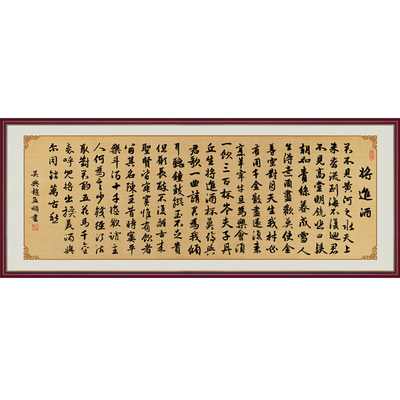 將進酒
君不見黃河之水天上
來奔流到海不復迴君
不見高堂明鏡悲白髮
朝如青絲暮成雪人
生得意須盡歡莫使金
尊空對月天生我材必
有用千金散盡還復來
烹羊宰牛且為樂會須
一飲三百杯岑夫子丹
丘生將進酒杯莫停與
君歌一曲請君為我傾
耳聽鐘鼓饌玉不足貴
但願長醉不復醒古來
聖賢皆寂寞惟有飲者
留其名陳王昔時宴平
樂斗酒十千恣歡謔主
人何為言少錢徑須沽
取對君酌五花馬千金
裘呼兒將出換美酒與
爾同銷萬古愁
吳興趙孟頫書